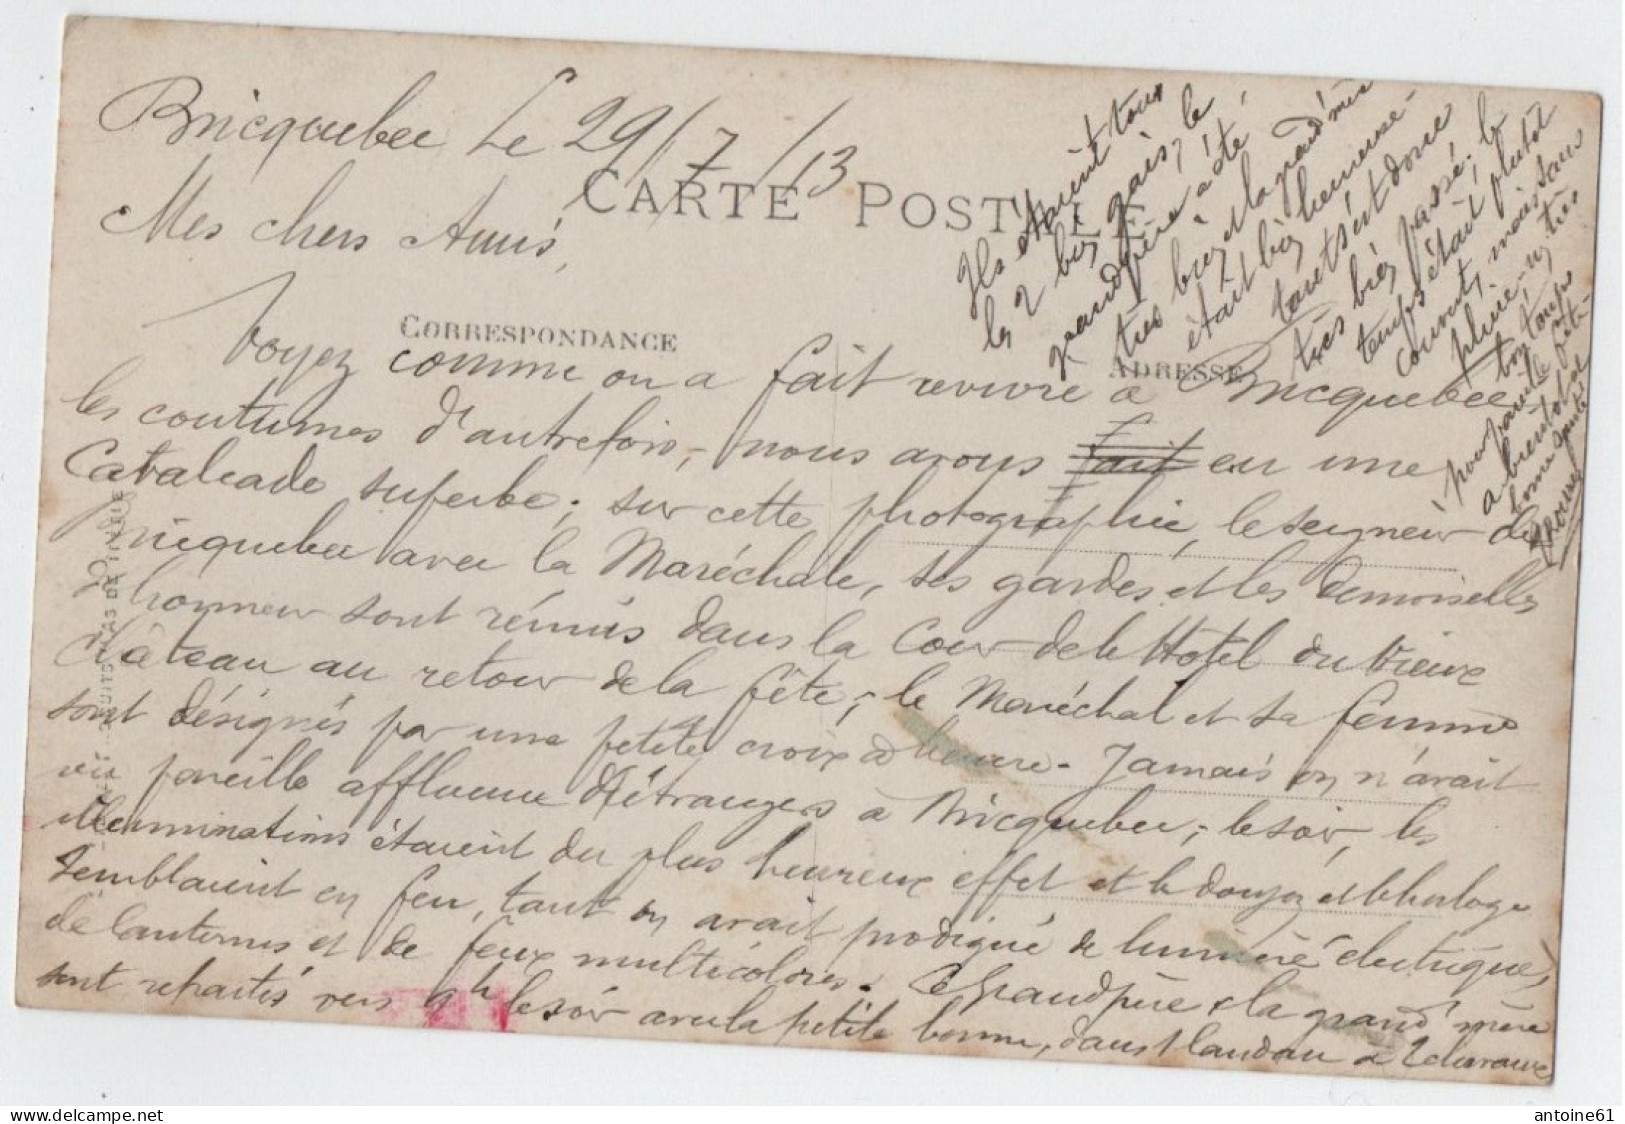 Bricquebec Le 29/7/13
CARTE POSTALE
Mes chers Amis,
CORRESPONDANCE
ADRESSE
Voyez comme on a fait revivre à Bricquebec
les coutumes d'autrefois, nous avons fait eu une
Cavalcade superbe; sur cette photographie, le seigneur de
Bricquebec avec la Maréchale, ses gardes et les demoiselles
d'honneur sont réunis dans la Cour de l'Hotel du Vieux
Château au retour de la fête; le Maréchal et sa femme
sont désignés par une petite croix à l'encre. Jamais on n'avait
vu pareille affluence d'étrangers à Bricquebec; le soir, les
illuminations étaient du plus heureux effet et le donjon et l'horloge
semblaient en feu, tant on avait prodigué de lumière électrique,
de lanternes et de feux multicolores. Le Grand père et la grand'mère
sont repartis vers 9h le soir avec la petite bonne, dans 1 landau à 2 chevaux
Ils étaient tous
les 2 bien gais, le
grand père a été
très bien et la grand'mère
était bien heureuse
tout s'est donc
très bien passé, le
temps était plutot
couvert, mais sans
pluie, un très
bon temps
pour pareille fête
a bientot al
bonne santé